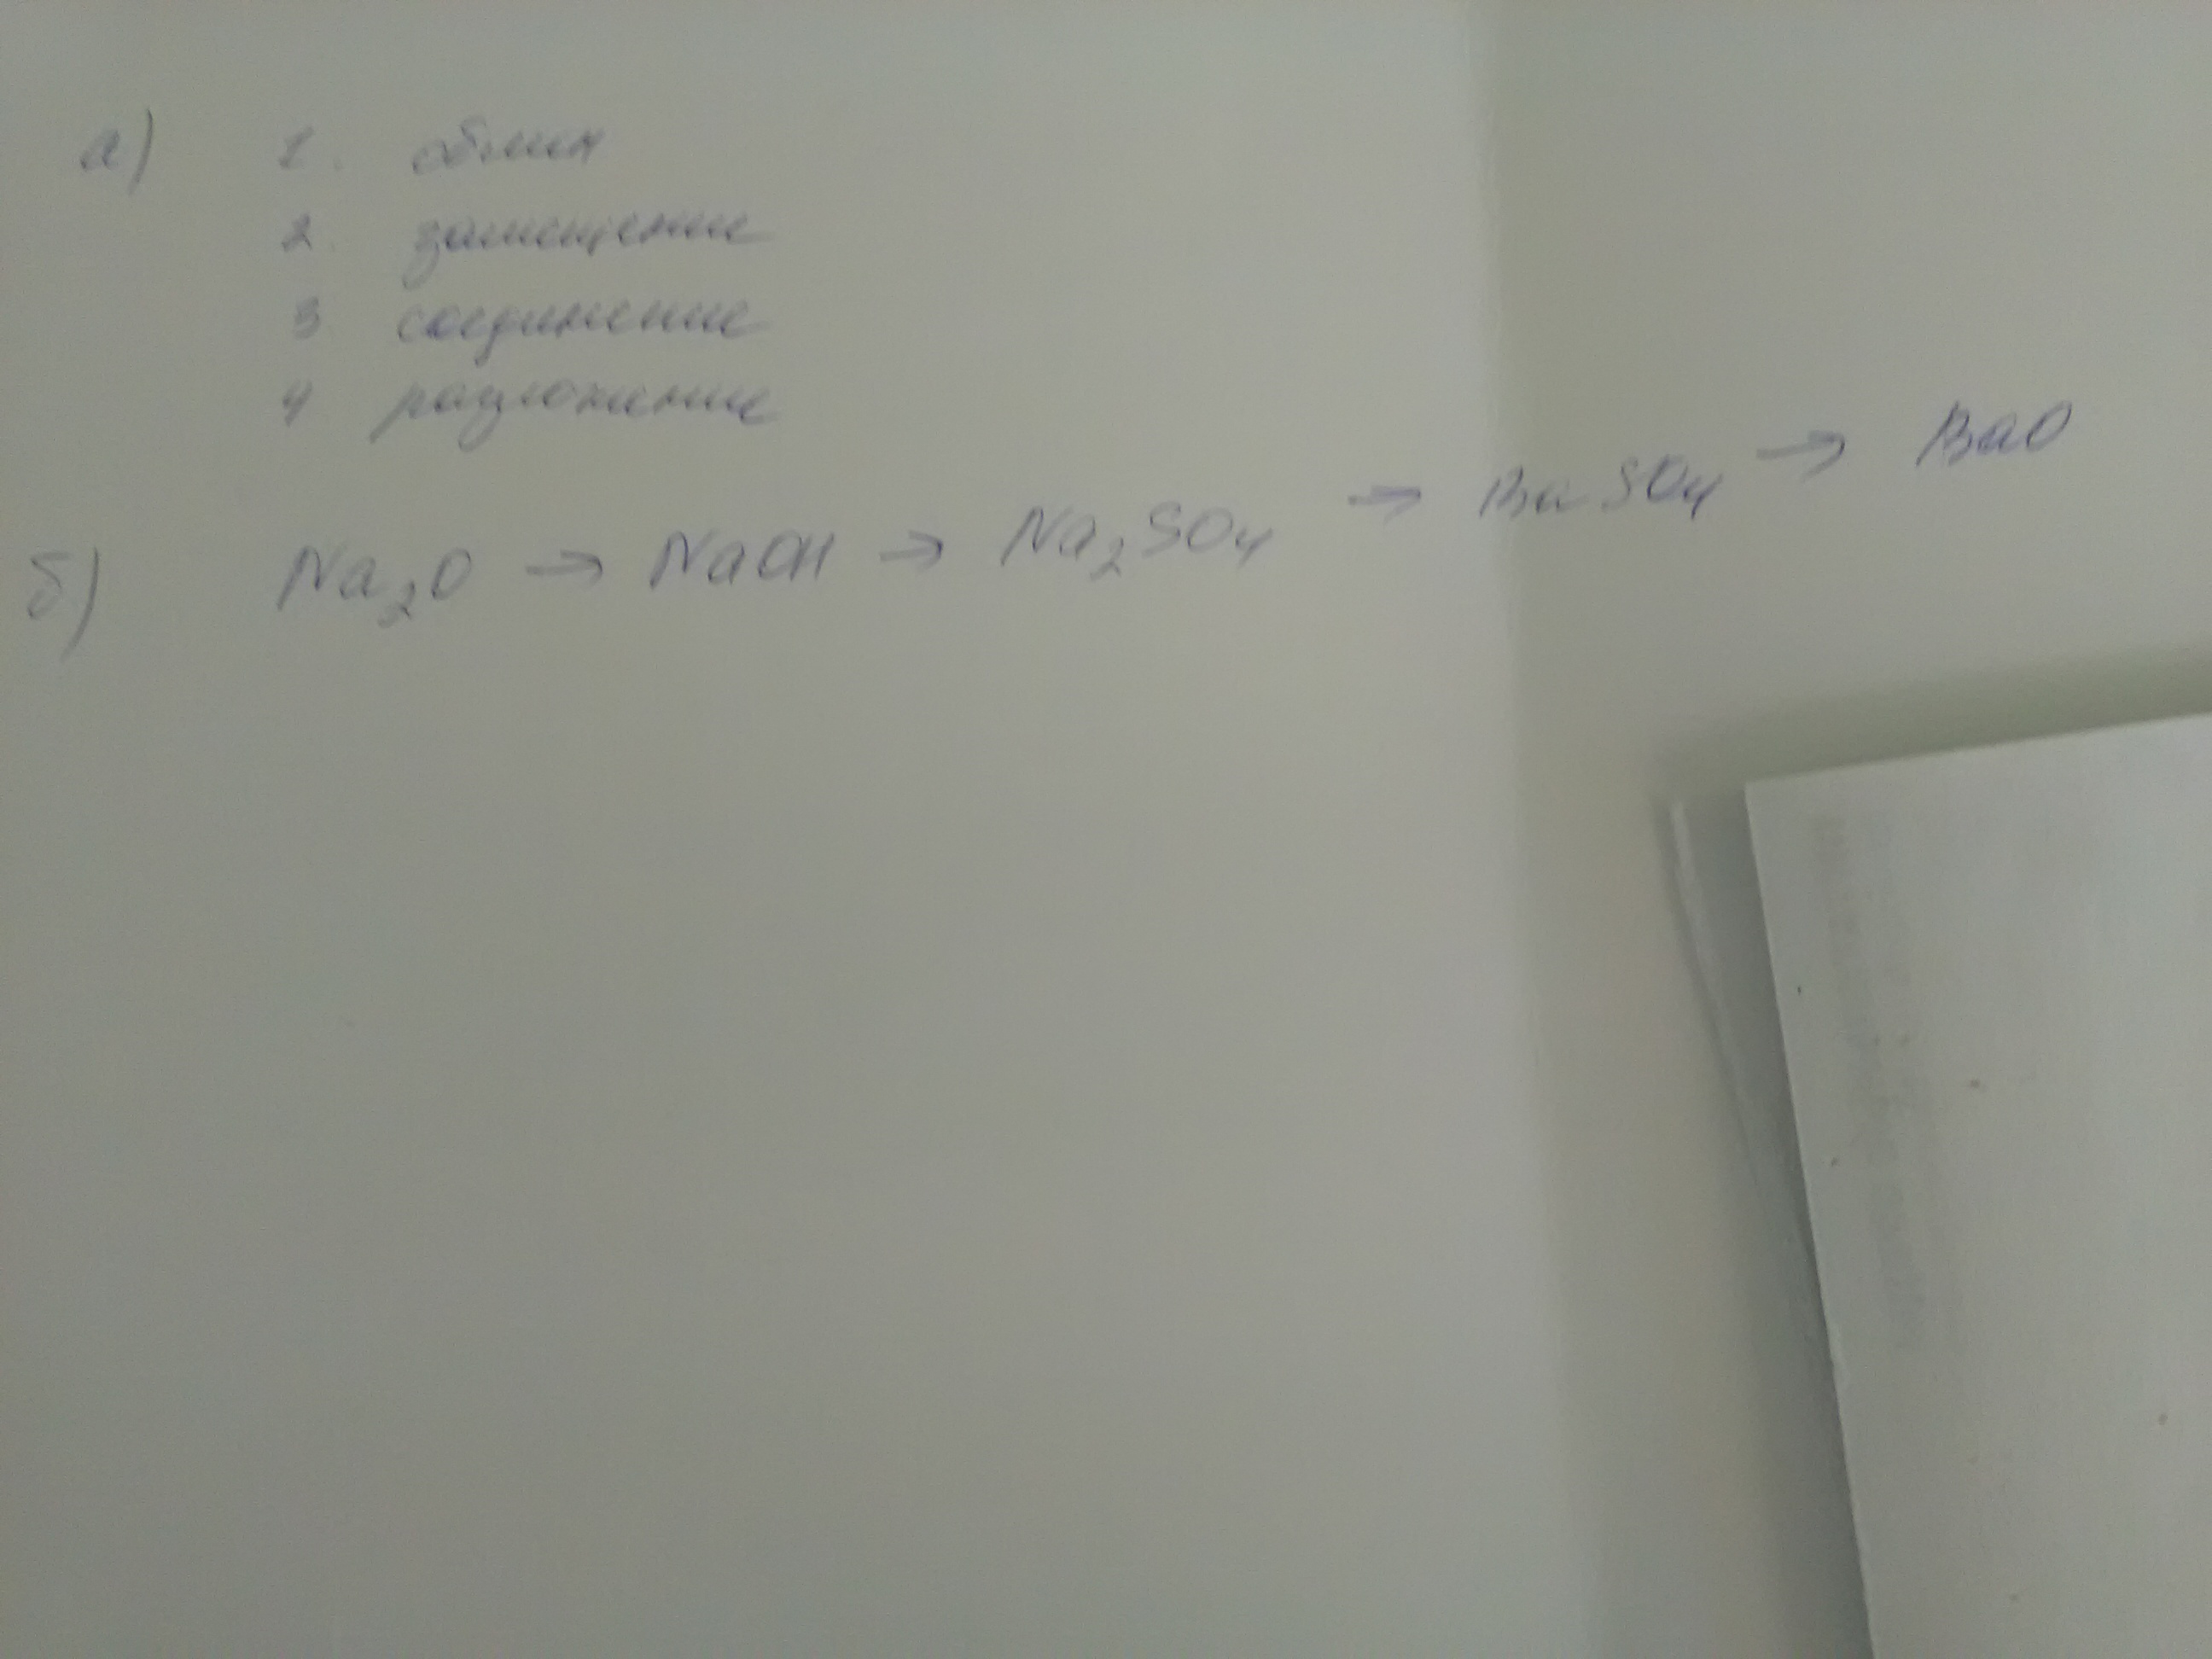 а) 1. обмен
2. замещение
3 соединение
4 разложение
б) Na₂O → NaOH → Na₂SO₄ → BaSO₄ → BaO